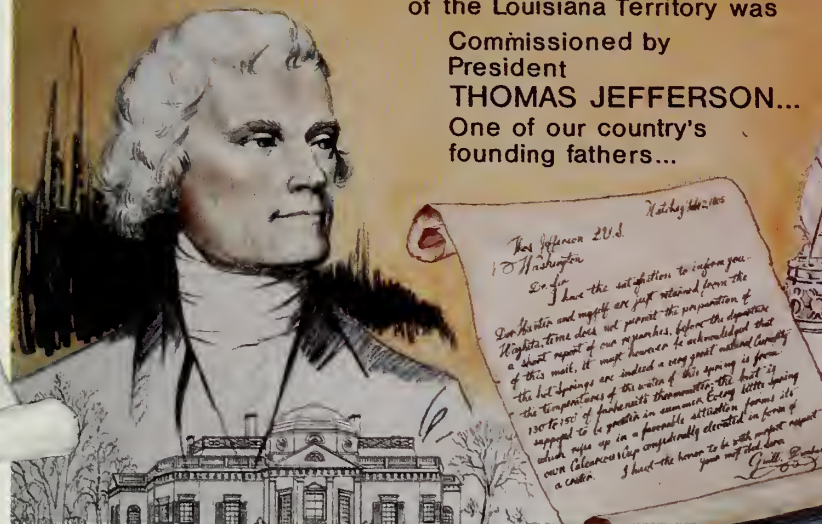 of the Louisiana Territory was
Commissioned by
President
THOMAS JEFFERSON...
One of our country's
founding fathers...
Thos Jefferson
Washington
Dr Sir
I have the satisfaction to inform you
Doctor Hunter and myself are just returned from the
time does not permit the preparation of
a short report of our researches, before the departure
of this mail, it must however be acknowledged that
the hot springs are indeed a very great natural Curiosity
the temperatures of the water of this spring is from
130 to 150 of thermometer, the heat is
supposed to be greater in summer Every little spring
which up in a favorable situation forms its
own Calcareous Cup considerably elevated in form of
a crater. I have the honor to be with respect
your